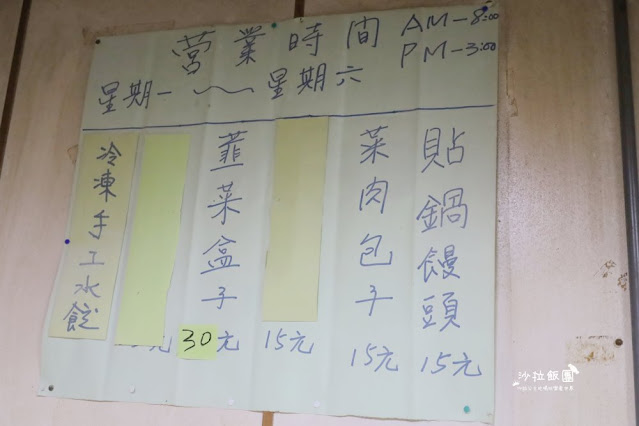 營業時間 AM-8:00
PM-3:00
星期一～星期六
貼鍋饅頭 15元
菜肉包子 15元
15元
韮菜盒子 30元
元
冷凍手工水餃
沙拉飯團